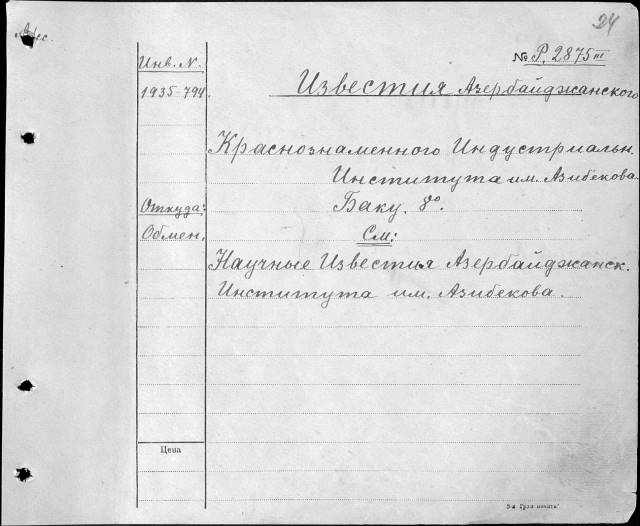 24
№ P. 2875 III
Инв. N.
Известия Азербайджанского
1935-794.
Краснознаменного Индустриальн.
Института им. Азибекова.
Откуда:
Баку. 8°.
Обмен.
См:
Научные Известья Азербайджанск.
Института им. Азибекова.
Цена